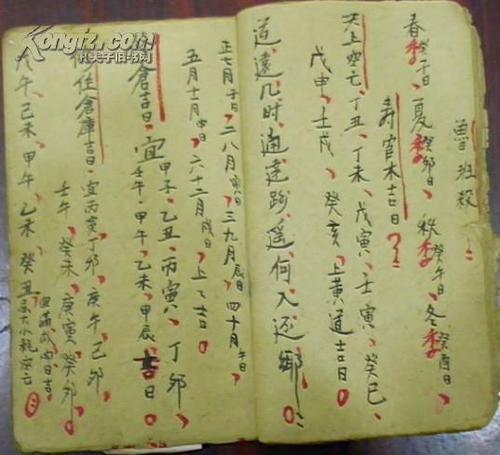 魯班殺
春季子日、夏季癸卯日、秋季癸午日、冬季癸酉日
壽官木吉日
天上空亡、丁丑、丁未、戊寅、壬寅、癸巳
戊申、壬戌、癸亥、上黃道吉日
道遠几时通達、路遙何入还鄉
正七月子日、二八月寅日、三九月辰日、四十月午日
五月十一月申日、六十二月戌日、上乙吉
倉吉日、宜甲子、乙丑、丙寅、丁卯
壬午、甲午、乙未、甲辰、吉日
住倉庫吉日、宜丙寅、丁卯、庚午、己卯
壬午、癸未、庚寅、癸卯
午、己未、甲午、乙未、癸丑
Kongfz.com
孔夫子旧书网